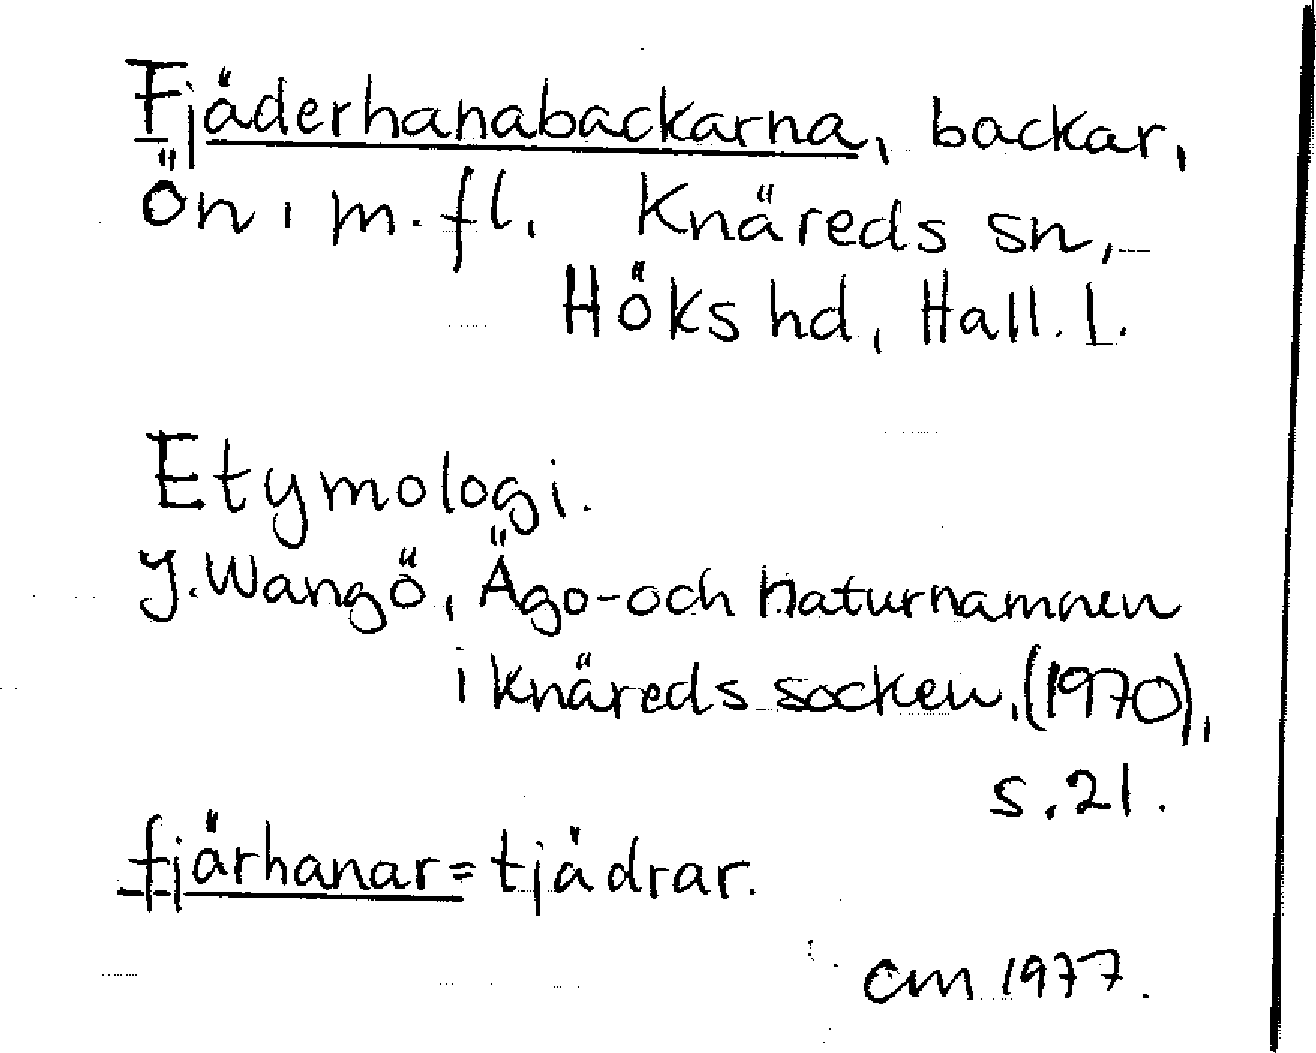 Fjäderhanabackarna, backar,
Ön, m.fl. Knäreds sn,
Höks hd, Hall. l.
Etymologi.
J. Wangö, Ägo- och naturnamnen
i Knäreds socken, (1970),
s. 21.
fjärhanar = tjädrar.
CM 1977.